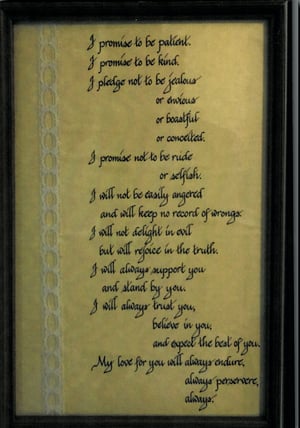 I promise to be patient.
I promise to be kind.
I pledge not to be jealous
or envious
or boastful
or conceited.
I promise not to be rude
or selfish.
I will not be easily angered
and will keep no record of wrongs.
I will not delight in evil
but will rejoice in the truth.
I will always support you
and stand by you.
I will always trust you,
believe in you,
and expect the best of you.
My love for you will always endure,
always perservere,
always.